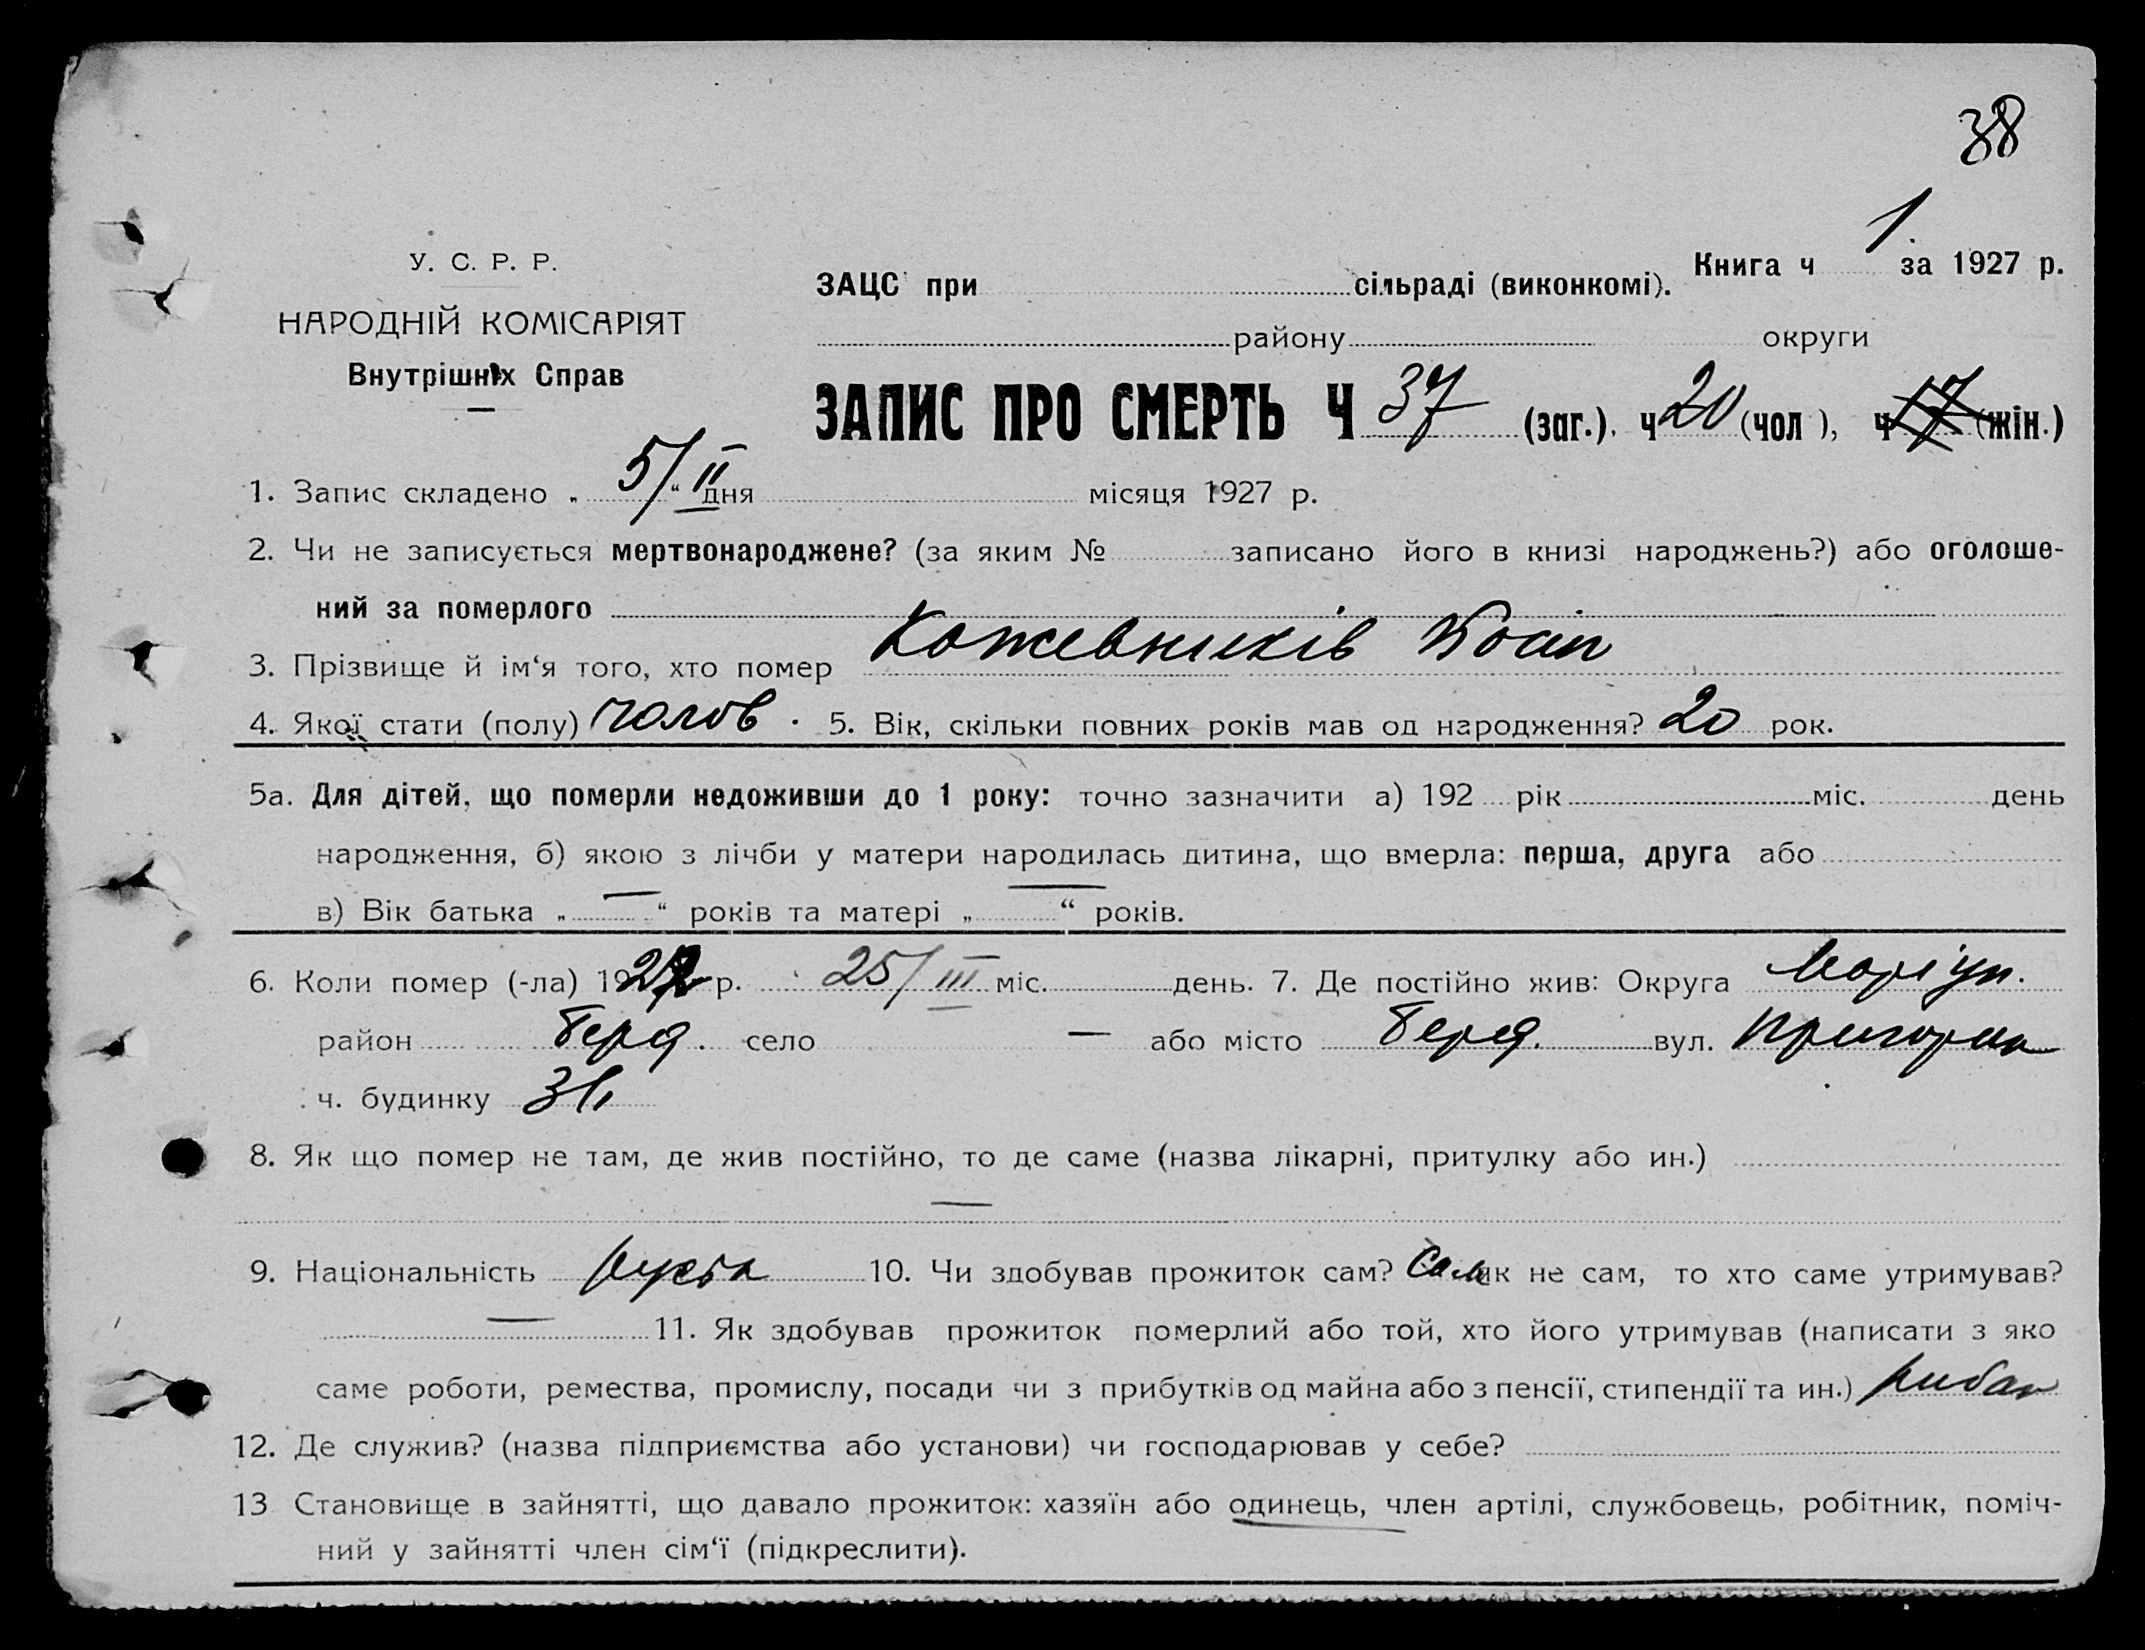 38
У. С. Р. Р.
НАРОДНІЙ КОМІСАРІЯТ
Внутрішніх Справ
Книга ч 1 за 1927 р.
ЗАЦС при сільраді (виконкомі).
району округи
ЗАПИС ПРО СМЕРТЬ Ч 37 (заг.). ч 20 (чол), ч 17 (жін.)
1. Запис складено „ 5/II “ дня місяця 1927 р.
2. Чи не записується мертвонароджене? (за яким № записано його в книзі народжень?) або оголоше-
ний за померлого
3. Прізвище й ім‘я того, хто помер Кожевників Йосіп
4. Якої стати (полу) чолов. 5. Вік, скільки повних років мав од народження? 20 рок.
5а. Для дітей, що померли недоживши до 1 року: точно зазначити а) 192 рік міс. день
народження, б) якою з лічби у матери народилась дитина, що вмерла: перша, друга або
в) Вік батька „ — “ років та матері „ — “ років.
6. Коли помер (-ла) 192 р. 25/III міс. день. 7. Де постійно жив: Округа Маріуп.
район Берд. село — або місто Берд. вул.
ч. будинку
8. Як що помер не там, де жив постійно, то де саме (назва лікарні, притулку або ин.)
—
9. Національність 10. Чи здобував прожиток сам? Сам як не сам, то хто саме утримував?
— 11. Як здобував прожиток померлий або той, хто його утримував (написати з яко
саме роботи, ремества, промислу, посади чи з прибутків од майна або з пенсії, стипендії та ин.) рибак
12. Де служив? (назва підприємства або установи) чи господарював у себе?
13 Становище в зайнятті, що давало прожиток: хазяїн або одинець, член артілі, службовець, робітник, поміч-
ний у зайнятті член сім‘ї (підкреслити).